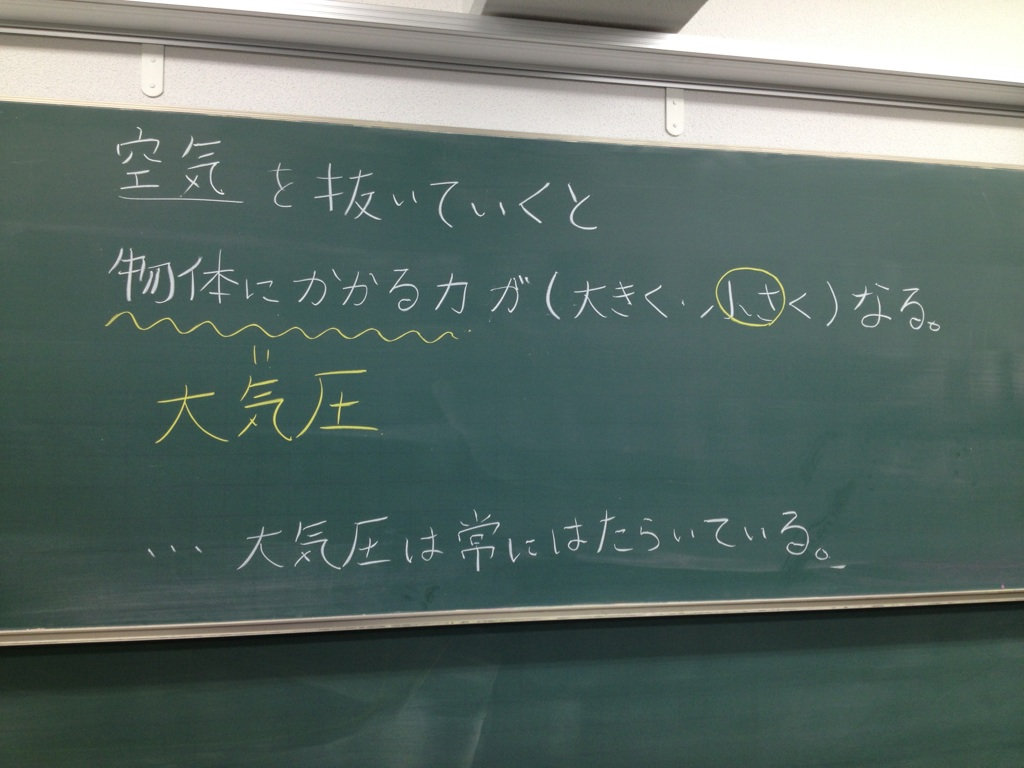 空気を抜いていくと
物体にかかる力が(大きく・小さく)なる。
〃
大気圧
… 大気圧は常にはたらいている。